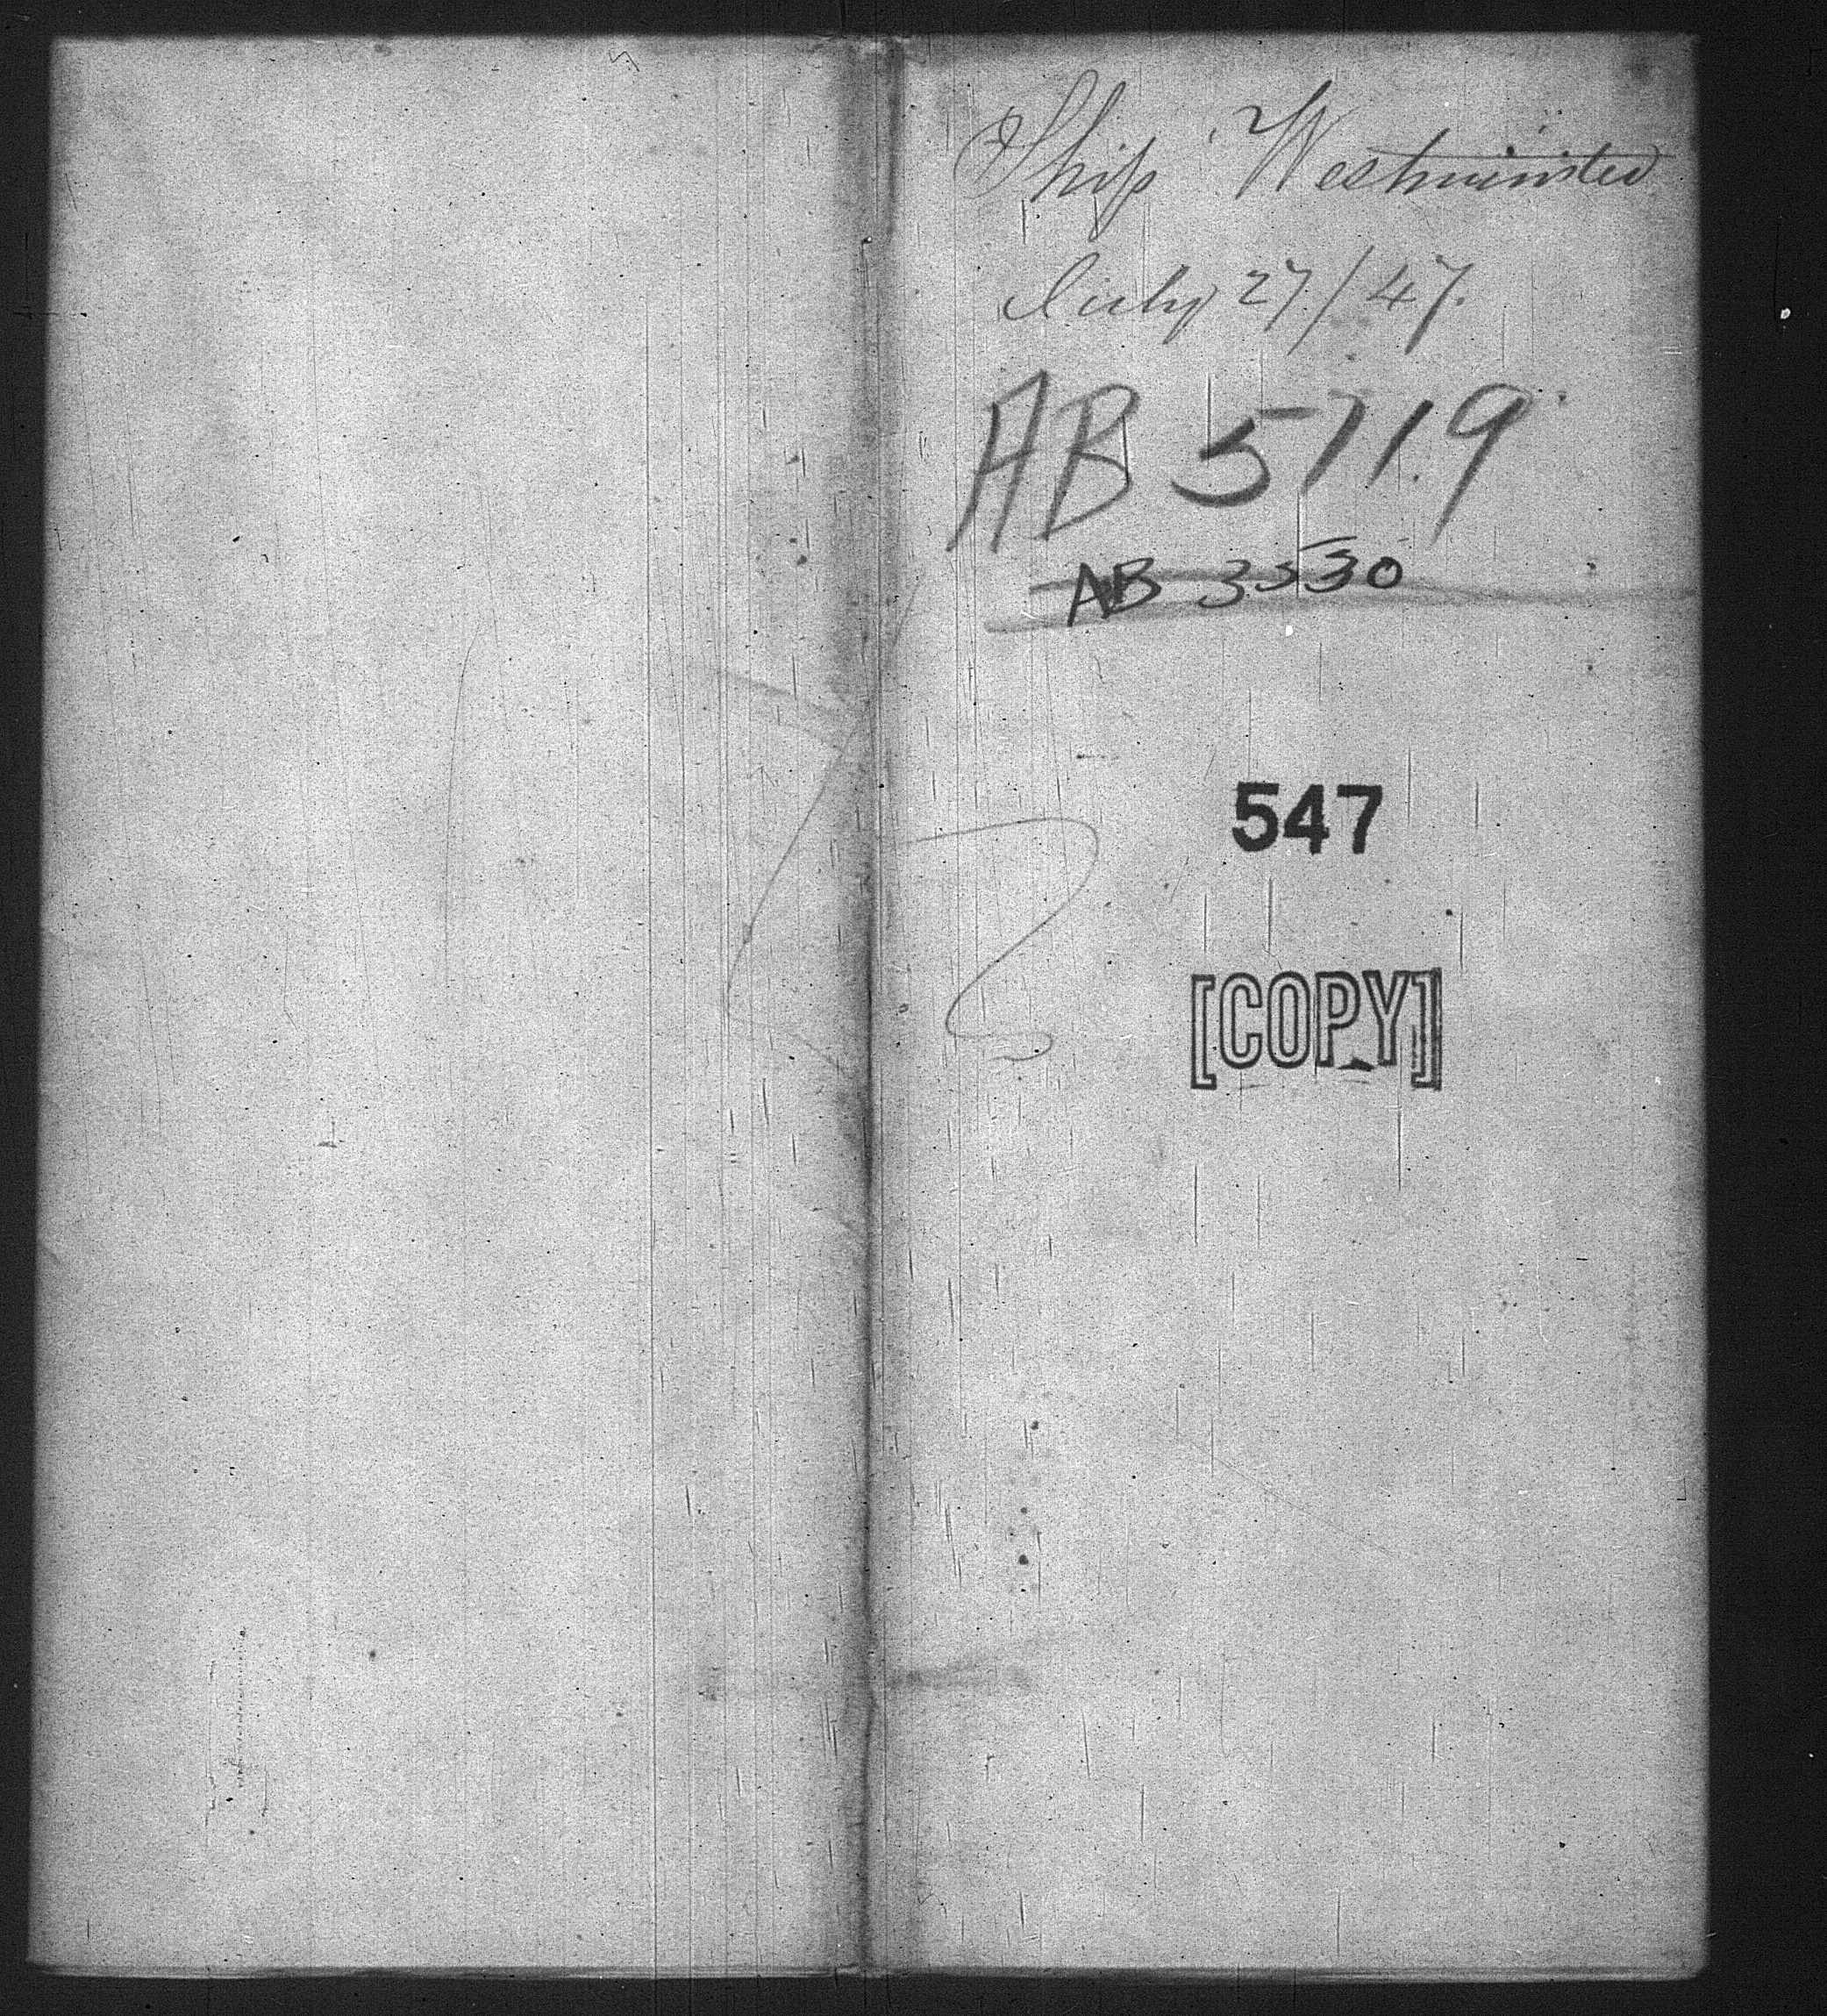 Ship Westminster
July 27/47.
AB 5719
AB 3530
547
[COPY]